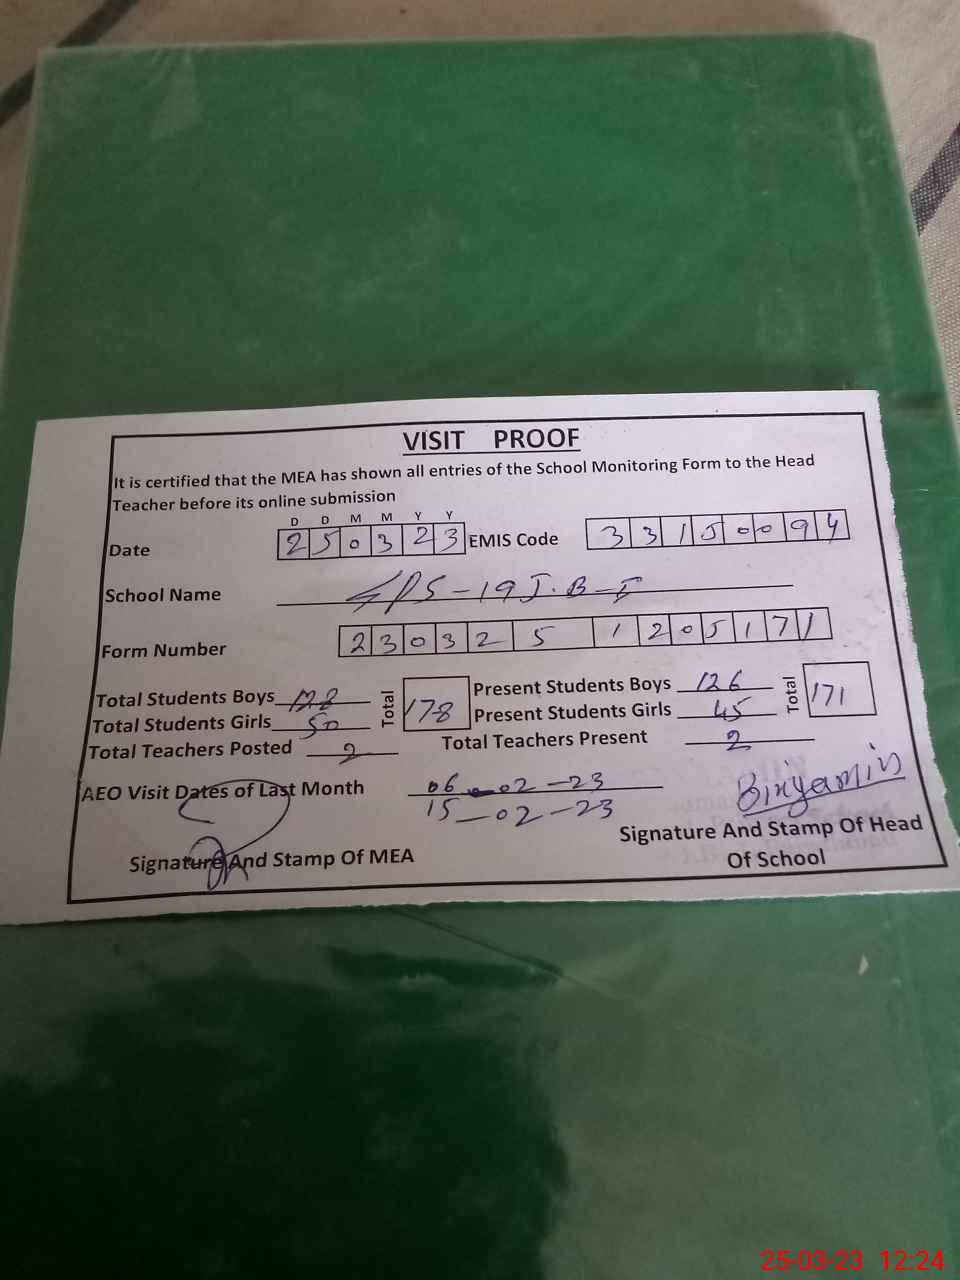 VISIT PROOF
It is certified that the MEA has shown all entries of the School Monitoring Form to the Head
Teacher before its online submission
D D M M Y Y
Date 2 5 0 3 2 3 EMIS Code 3 3 1 5 0 0 9 4
School Name GPS-19 J.B-I
Form Number 2 3 0 3 2 5 1 2 0 5 1 7 1
Total Students Boys 128 Total 178 Present Students Boys 126 Total 171
Total Students Girls 50 Present Students Girls 45
Total Teachers Posted 2 Total Teachers Present 2
AEO Visit Dates of Last Month 06-02-23
15-02-23
Binyamin
Signature And Stamp Of MEA Signature And Stamp Of Head
Of School
25-03-23 12:24